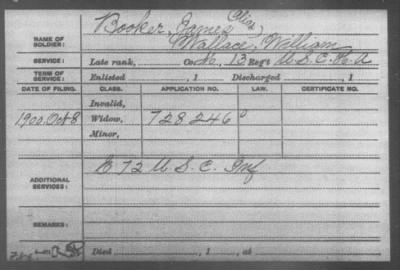 NAME OF SOLDIER: Booker, James (Alias)
Wallace, William
SERVICE: Late rank, Co. K, 13 Reg't U.S.C.H.A
TERM OF SERVICE: Enlisted , 1 Discharged , 1
DATE OF FILING. CLASS. APPLICATION NO. LAW. CERTIFICATE NO.
Invalid,
1900. Oct 8 Widow, 728246
Minor,
ADDITIONAL SERVICES: B 72 U.S.C. Inf
REMARKS:
Died , 1 , at